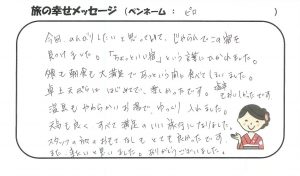 旅の幸せメッセージ（ペンネーム： ピロ ）
今回、のんびりしたいと思ってみて、じゃらんでこの宿を
見つけました。「ちょっといい宿」という言葉にひかれました。
夕食も朝食も大満足であっという間に食べてしまいました。
卓上天ぷらははじめてで、楽しかったです。塩辛もおいしかったです
温泉もやわらかいお湯で、ゆっくり入れました。
天気も良く、すべて満足のいい旅行になりました。
スタッフの方のおもてなしもとても良かったです。
また、来たいと思いました。ありがとうございました。